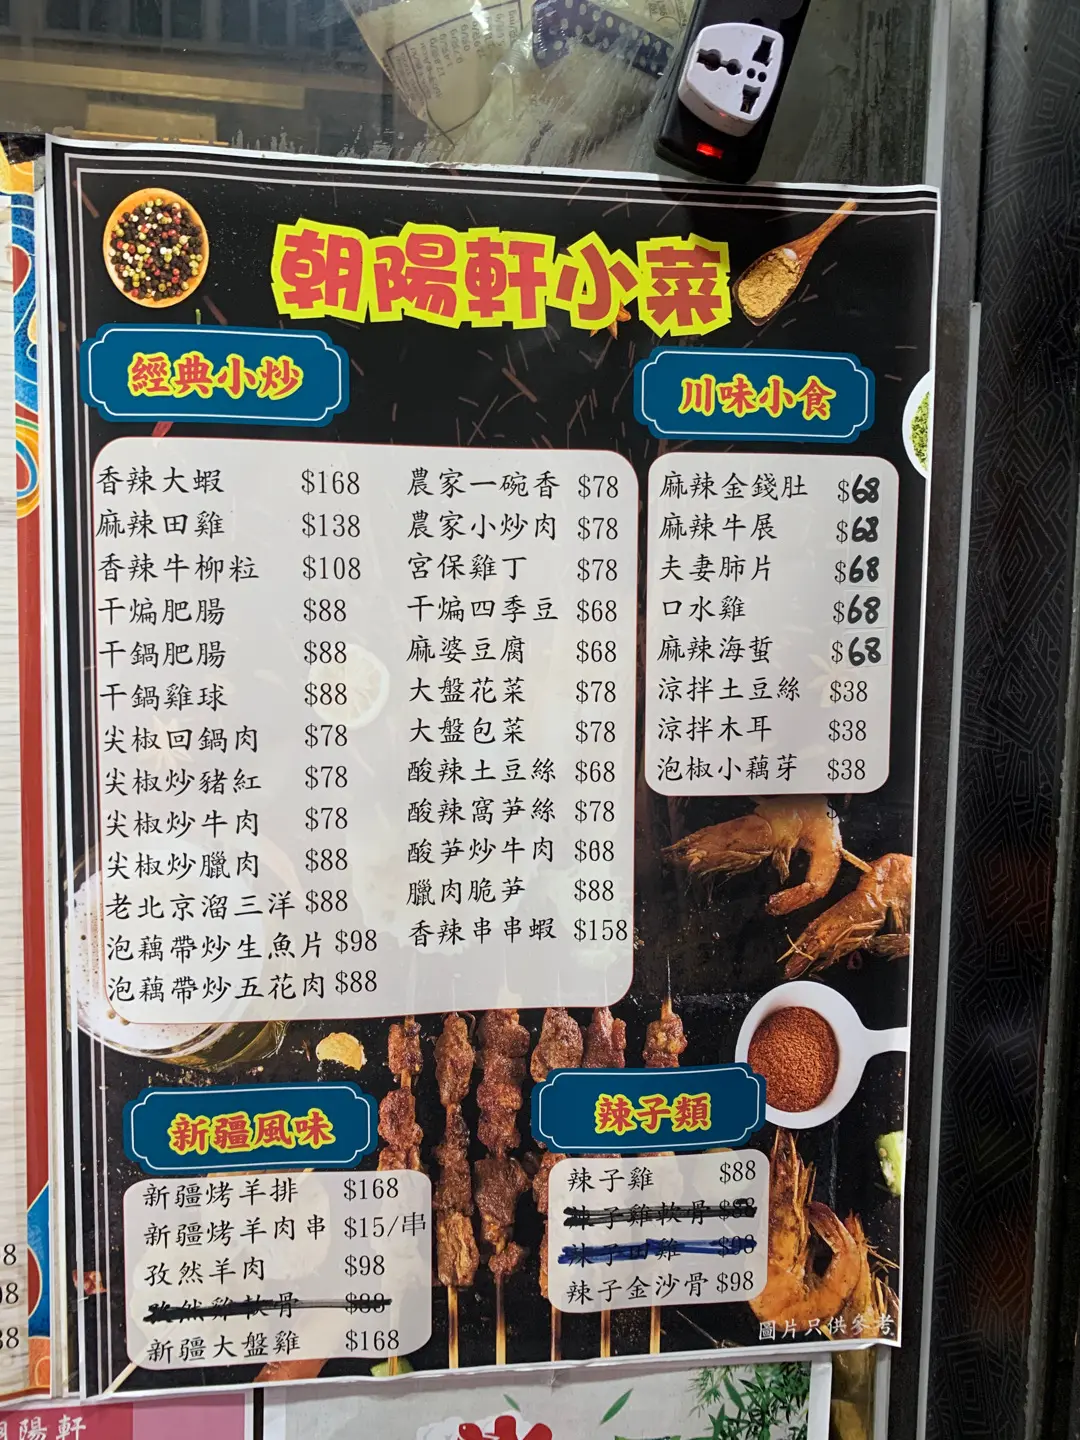 朝陽軒小菜
經典小炒
香辣大蝦 $168
麻辣田雞 $138
香辣牛柳粒 $108
干煸肥腸 $88
干鍋肥腸 $88
干鍋雞球 $88
尖椒回鍋肉 $78
尖椒炒豬紅 $78
尖椒炒牛肉 $78
尖椒炒臘肉 $88
老北京溜三洋 $88
泡藕帶炒生魚片 $98
泡藕帶炒五花肉 $88
農家一碗香 $78
農家小炒肉 $78
宮保雞丁 $78
干煸四季豆 $68
麻婆豆腐 $68
大盤花菜 $78
大盤包菜 $78
酸辣土豆絲 $68
酸辣窩笋絲 $78
酸笋炒牛肉 $68
臘肉脆笋 $88
香辣串串蝦 $158
川味小食
麻辣金錢肚 $68
麻辣牛展 $68
夫妻肺片 $68
口水雞 $68
麻辣海蜇 $68
涼拌土豆絲 $38
涼拌木耳 $38
泡椒小藕芽 $38
新疆風味
新疆烤羊排 $168
新疆烤羊肉串 $15/串
孜然羊肉 $98
孜然雞軟骨 $88
新疆大盤雞 $168
辣子類
辣子雞 $88
辣子雞軟骨 $88
辣子田雞 $98
辣子金沙骨 $98
圖片只供參考
陽軒